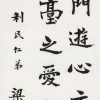 門遊心
之愛
利民仁弟
梁